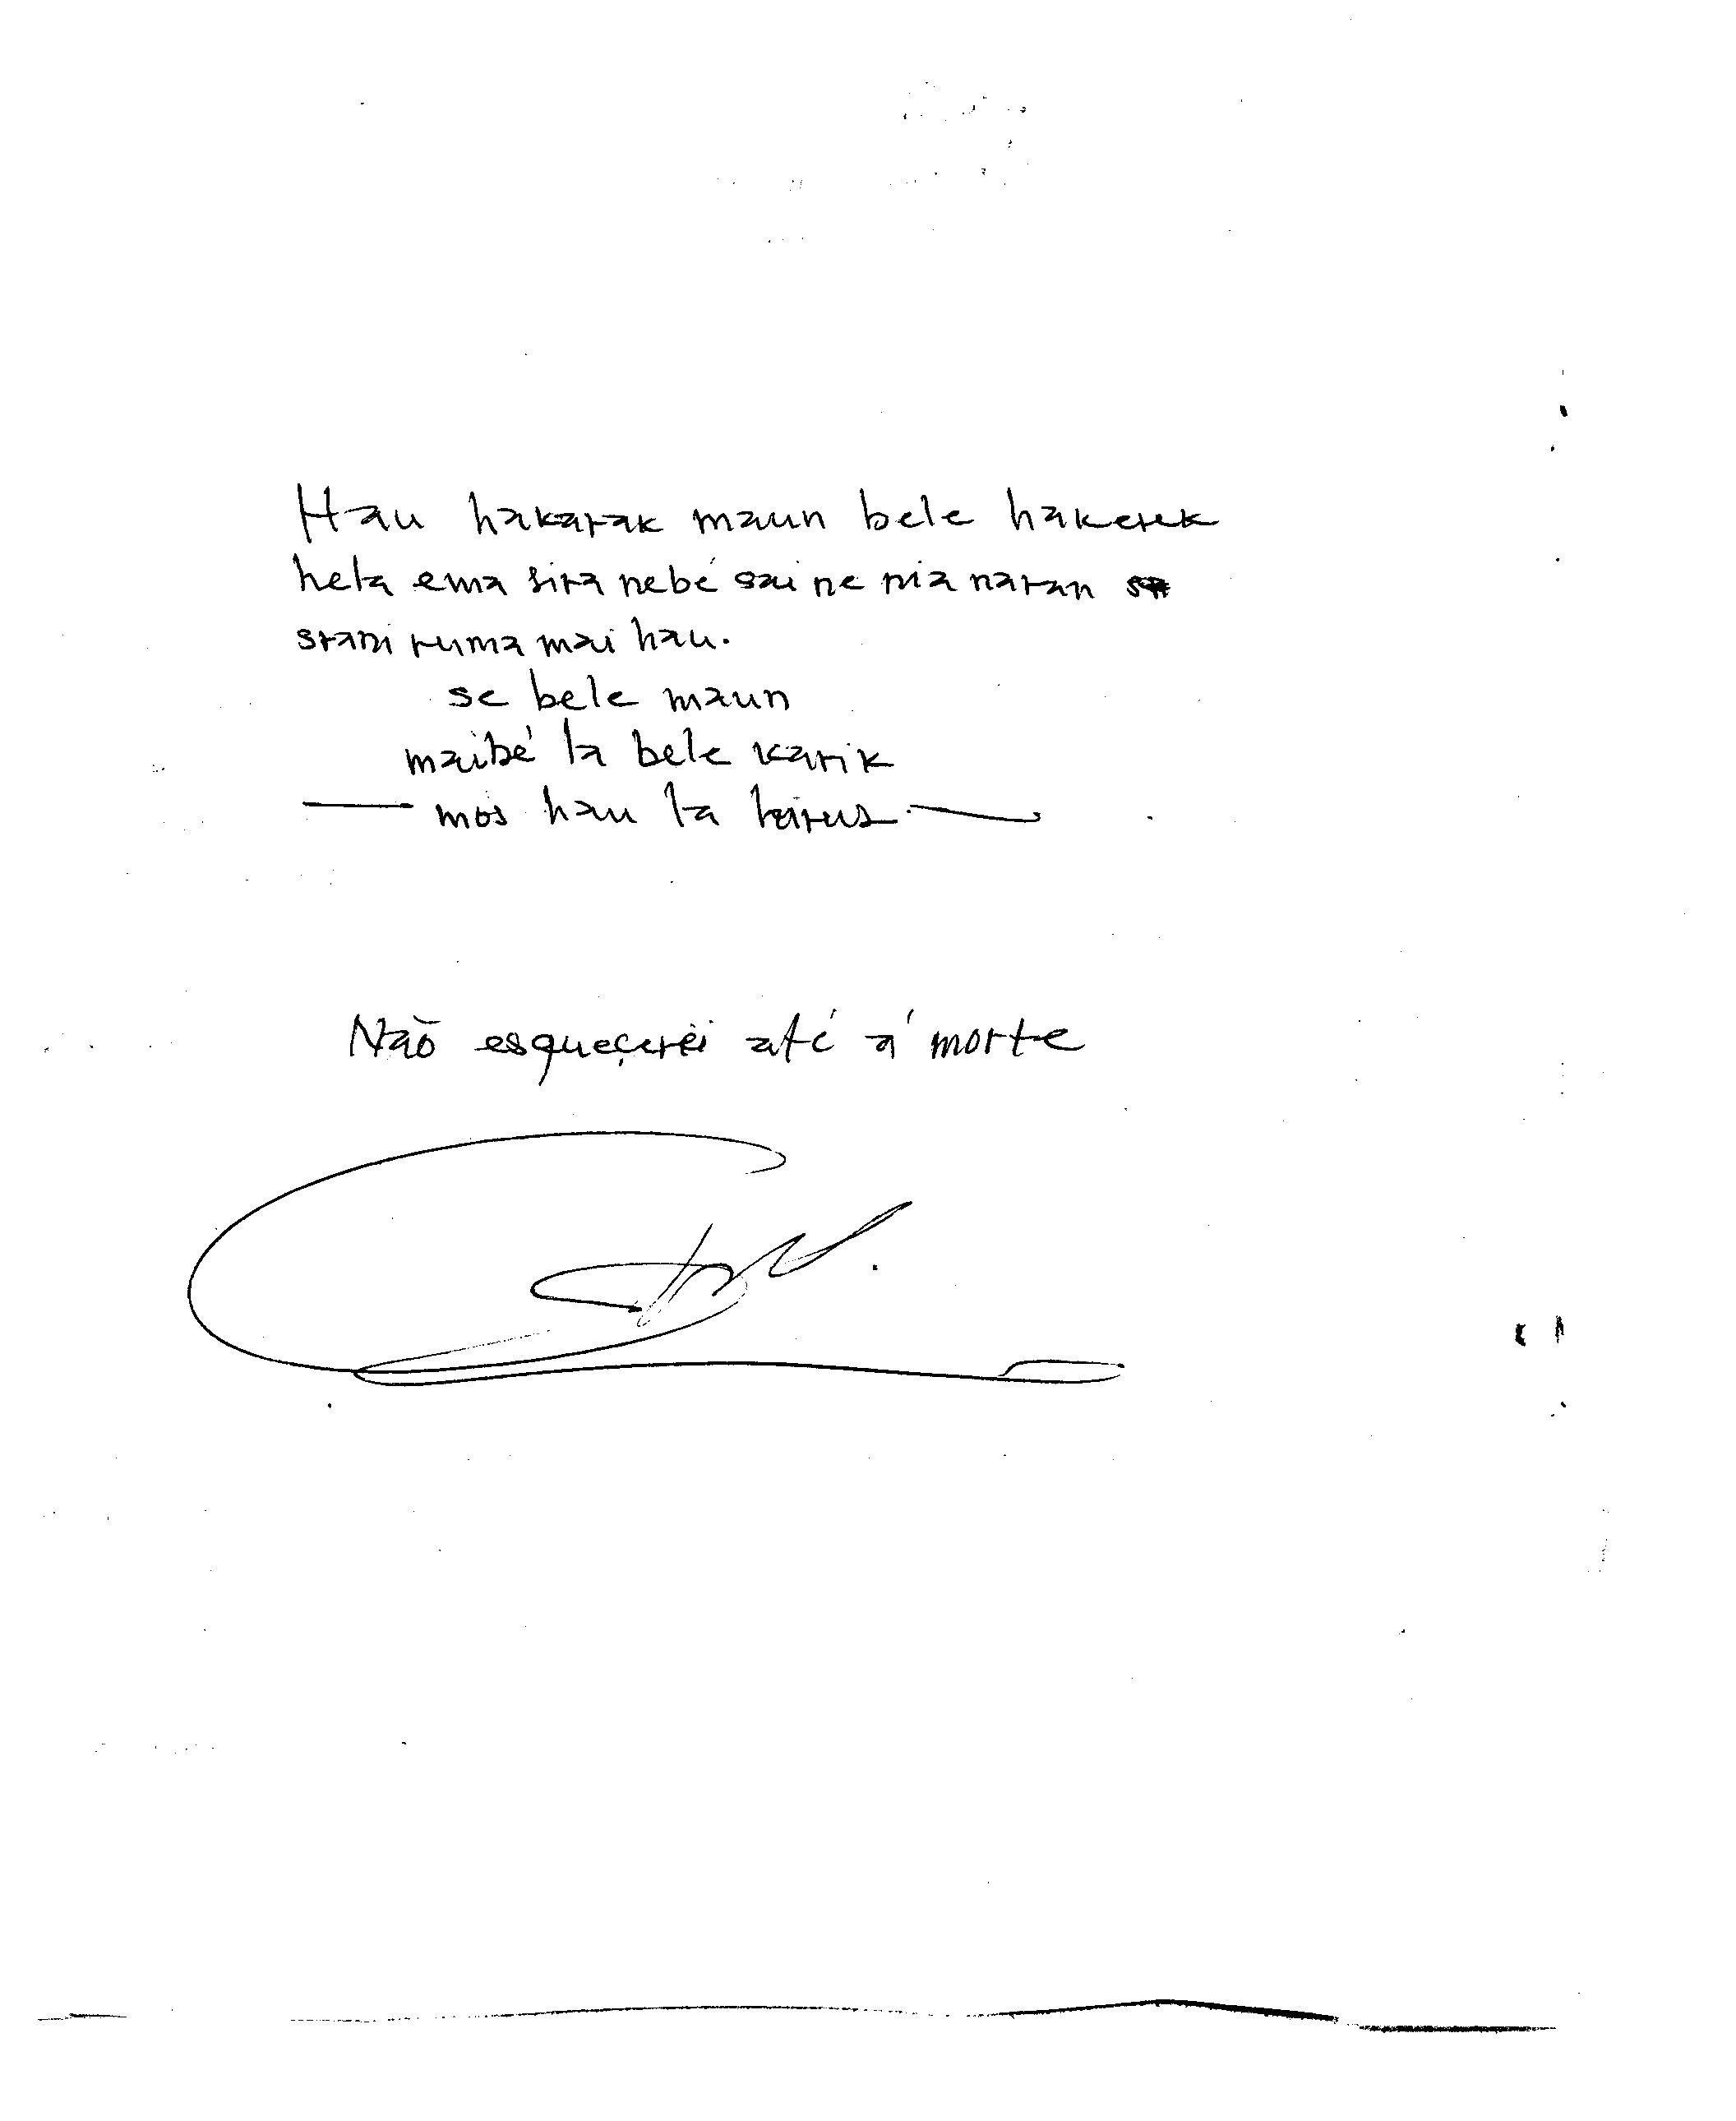 Hau hakarak maun bele hakerek
hela ema sira nebé sai ne nia naran
ruma mai hau.
se bele maun
maibé la bele karik
mos hau la
Não esquecerei até á morte